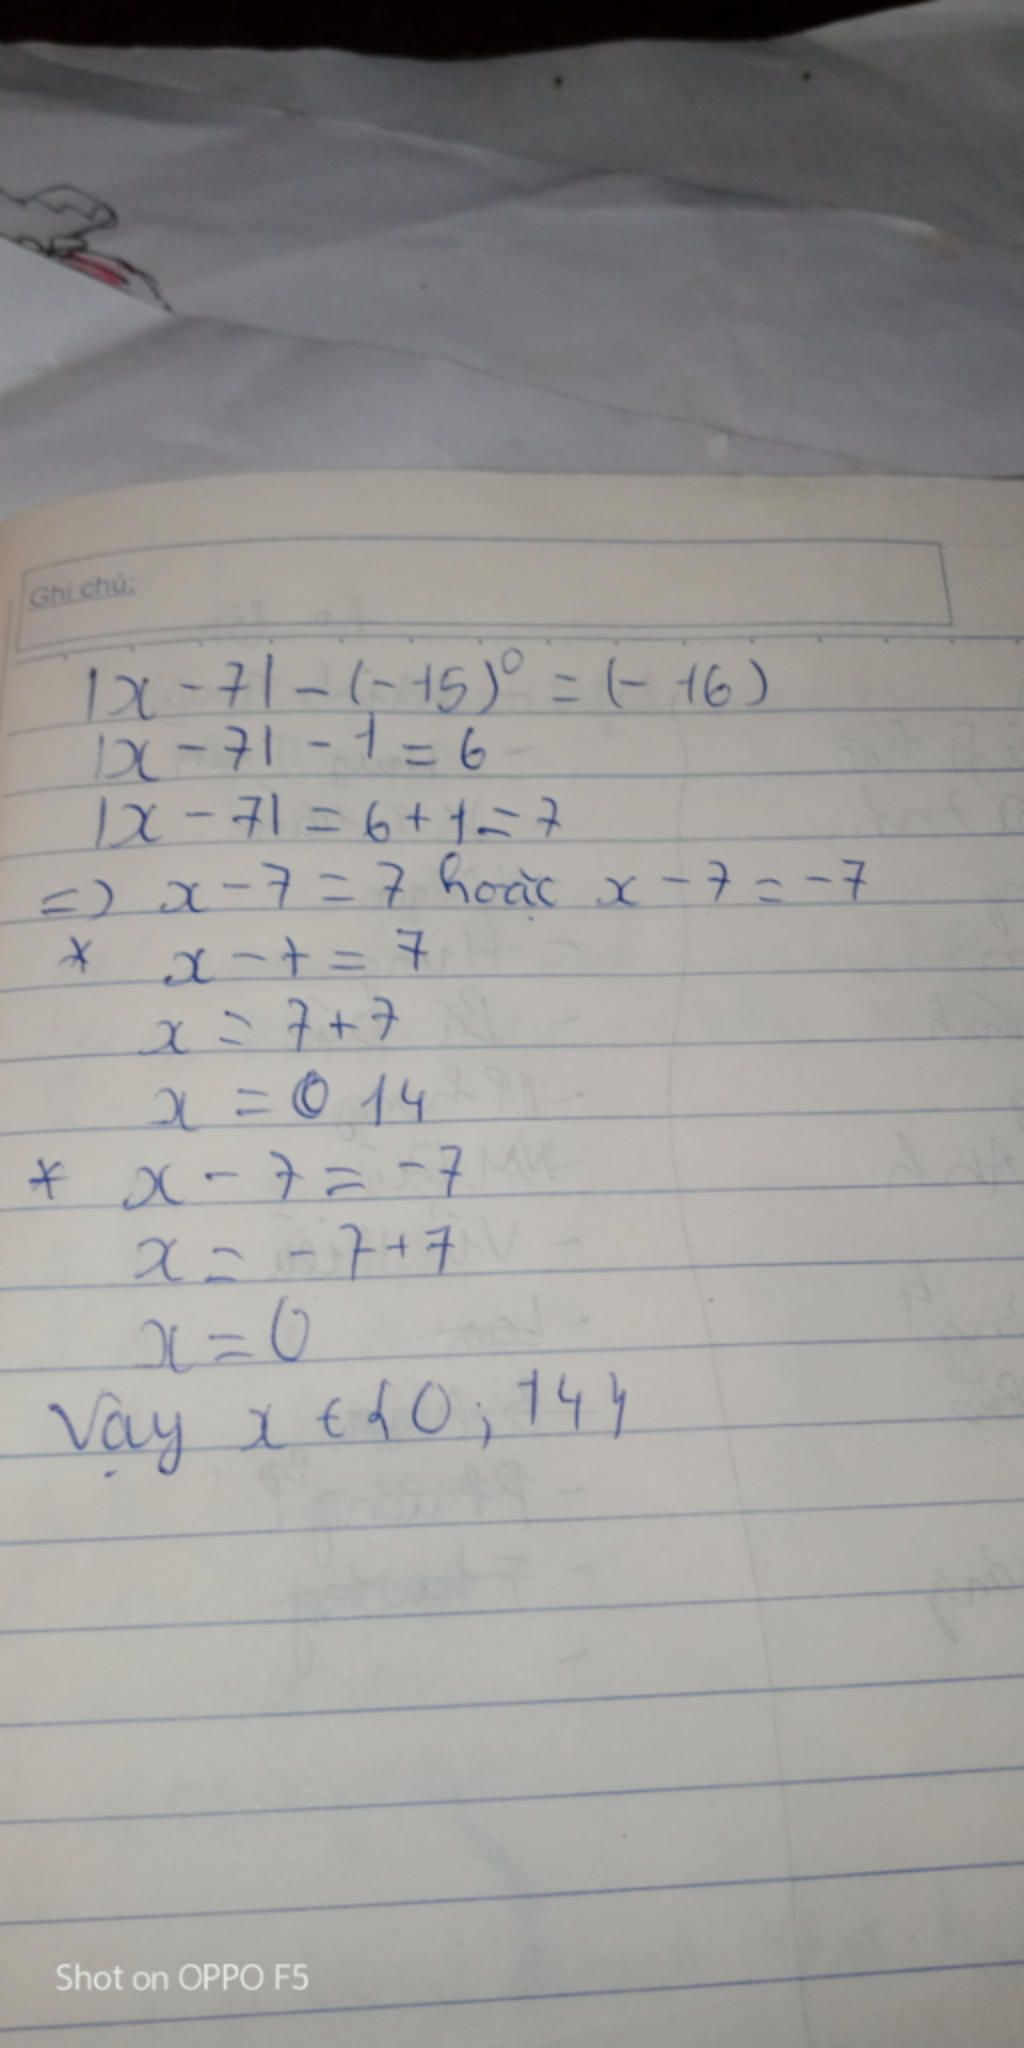 Ghi chú:
|x - 7| - (-15)⁰ = (- 16)
|x - 7| - 1 = 6
|x - 7| = 6 + 1 = 7
=> x - 7 = 7 hoặc x - 7 = - 7
* x - 7 = 7
x = 7 + 7
x = 0 14
* x - 7 = - 7
x = - 7 + 7
x = 0
Vậy x ∈ {0; 14}
Shot on OPPO F5